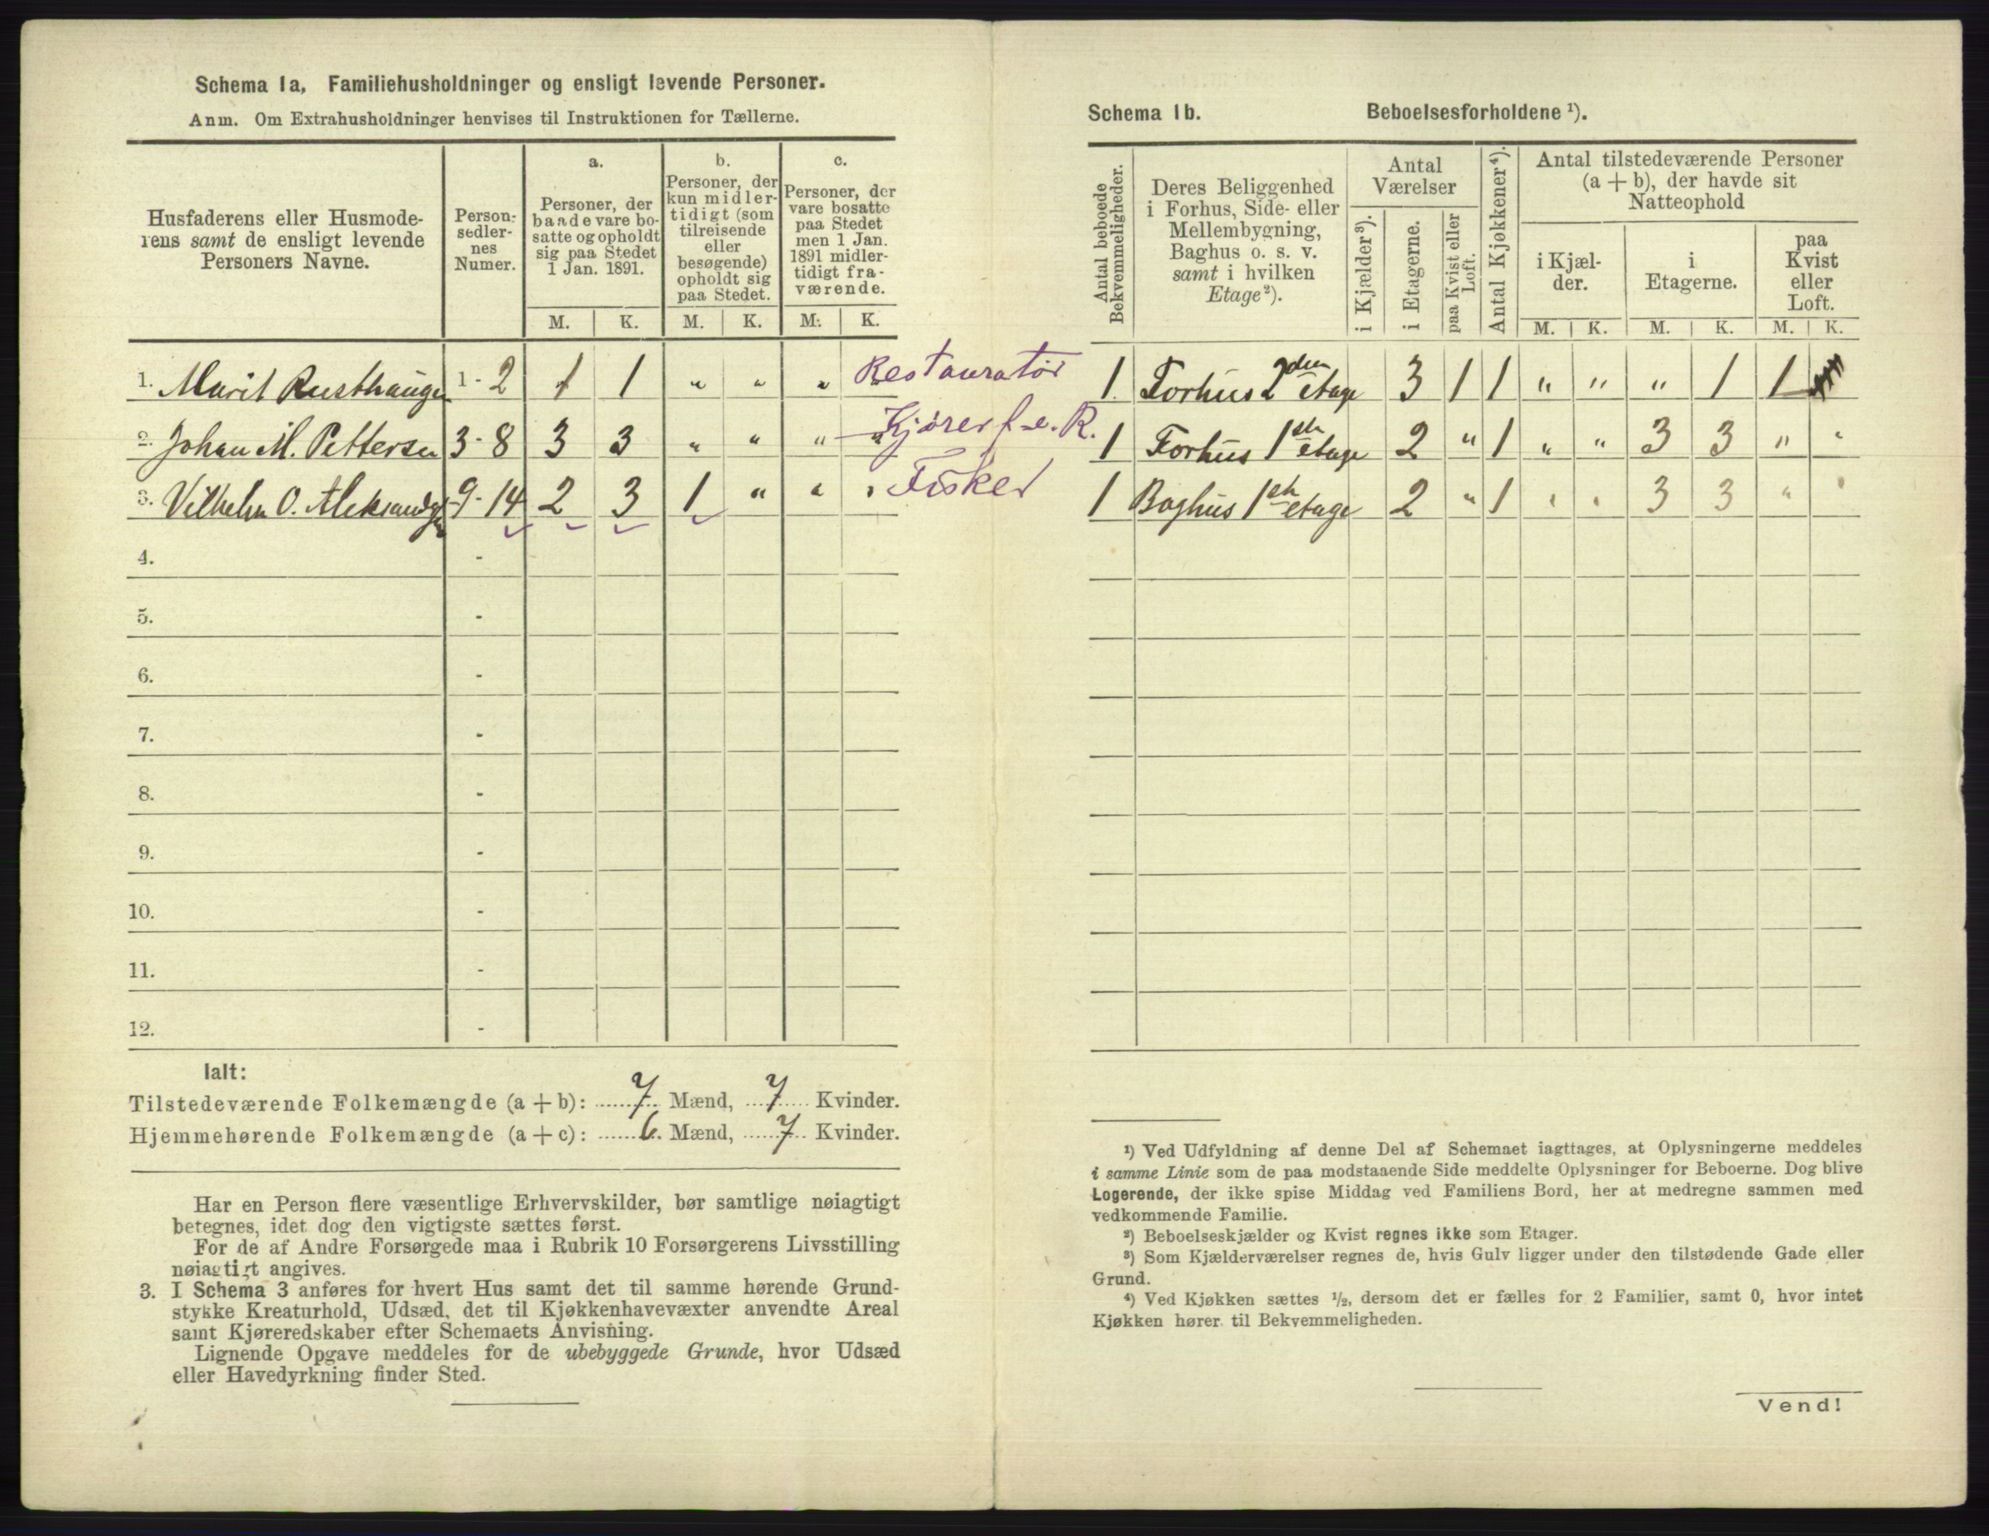 Schema 1a, Familiehusholdninger og ensligt levende Personer.
Anm. Om Extrahusholdninger henvises til Instruktionen for Tællerne.
Husfaderens eller Husmode-
rens samt de ensligt levende
Personers Navne.
Person-
sedler-
nes
Numer.
a.
Personer, der
baade vare bo-
satte og opholdt
sig paa Stedet
1 Jan. 1891.
b.
Personer, der
kun midler-
tidigt (som
tilreisende
eller
besøgende)
opholdt sig
paa Stedet.
c.
Personer, der
vare bosatte
paa Stedet
men 1 Jan.
1891 midler-
tidigt fra-
værende.
M. K. M. K. M. K.
1. Marit Rusthaugen 1 - 2 1 1 " " " " Restauratør
2. Johan M. Pettersen 3 - 8 3 3 " " " " Kjører f. e. R.
3. Vilhelm O. Aleksandersen 9 - 14 2 3 1 " " " Fisker
4. -
5. -
6. -
7. -
8. -
9. -
10. -
11. -
12. -
Ialt:
Tilstedeværende Folkemængde (a + b): 7 Mænd, 7 Kvinder.
Hjemmehørende Folkemængde (a + c): 6 Mænd, 7 Kvinder.
Har en Person flere væsentlige Erhvervskilder, bør samtlige nøiagtigt
betegnes, idet dog den vigtigste sættes først.
For de af Andre Forsørgede maa i Rubrik 10 Forsørgerens Livsstilling
nøiagtigt angives.
3. I Schema 3 anføres for hvert Hus samt det til samme hørende Grund-
stykke Kreaturhold, Udsæd, det til Kjøkkenhavevæxter anvendte Areal
samt Kjøreredskaber efter Schemaets Anvisning.
Lignende Opgave meddeles for de ubebyggede Grunde, hvor Udsæd
eller Havedyrkning finder Sted.
Schema 1b. Beboelsesforholdene ¹).
Antal beboede
Bekvemmeligheder.
Deres Beliggenhed
i Forhus, Side- eller
Mellembygning,
Baghus o. s. v.
samt i hvilken
Etage²).
Antal
Værelser
i Kjælder³).
i Etagerne.
paa Kvist eller
Loft.
Antal Kjøkkener⁴).
Antal tilstedeværende Personer
(a + b), der havde sit
Natteophold
i Kjæl-
der.
i
Etagerne.
paa
Kvist
eller
Loft.
M. K. M. K. M. K.
1 Forhus 2den etage 3 1 1 " " " 1 1
1 Forhus 1ste etage 2 " 1 " " 3 3 " "
1 Baghus 1ste etage 2 " 1 " " 3 3 " "
¹) Ved Udfyldning af denne Del af Schemaet iagttages, at Oplysningerne meddeles
i samme Linie som de paa modstaaende Side meddelte Oplysninger for Beboerne. Dog blive
Logerende, der ikke spise Middag ved Familiens Bord, her at medregne sammen med
vedkommende Familie.
²) Beboelseskjælder og Kvist regnes ikke som Etager.
³) Som Kjælderværelser regnes de, hvis Gulv ligger under den tilstødende Gade eller
Grund.
⁴) Ved Kjøkken sættes ½, dersom det er fælles for 2 Familier, samt 0, hvor intet
Kjøkken hører til Bekvemmeligheden.
Vend!